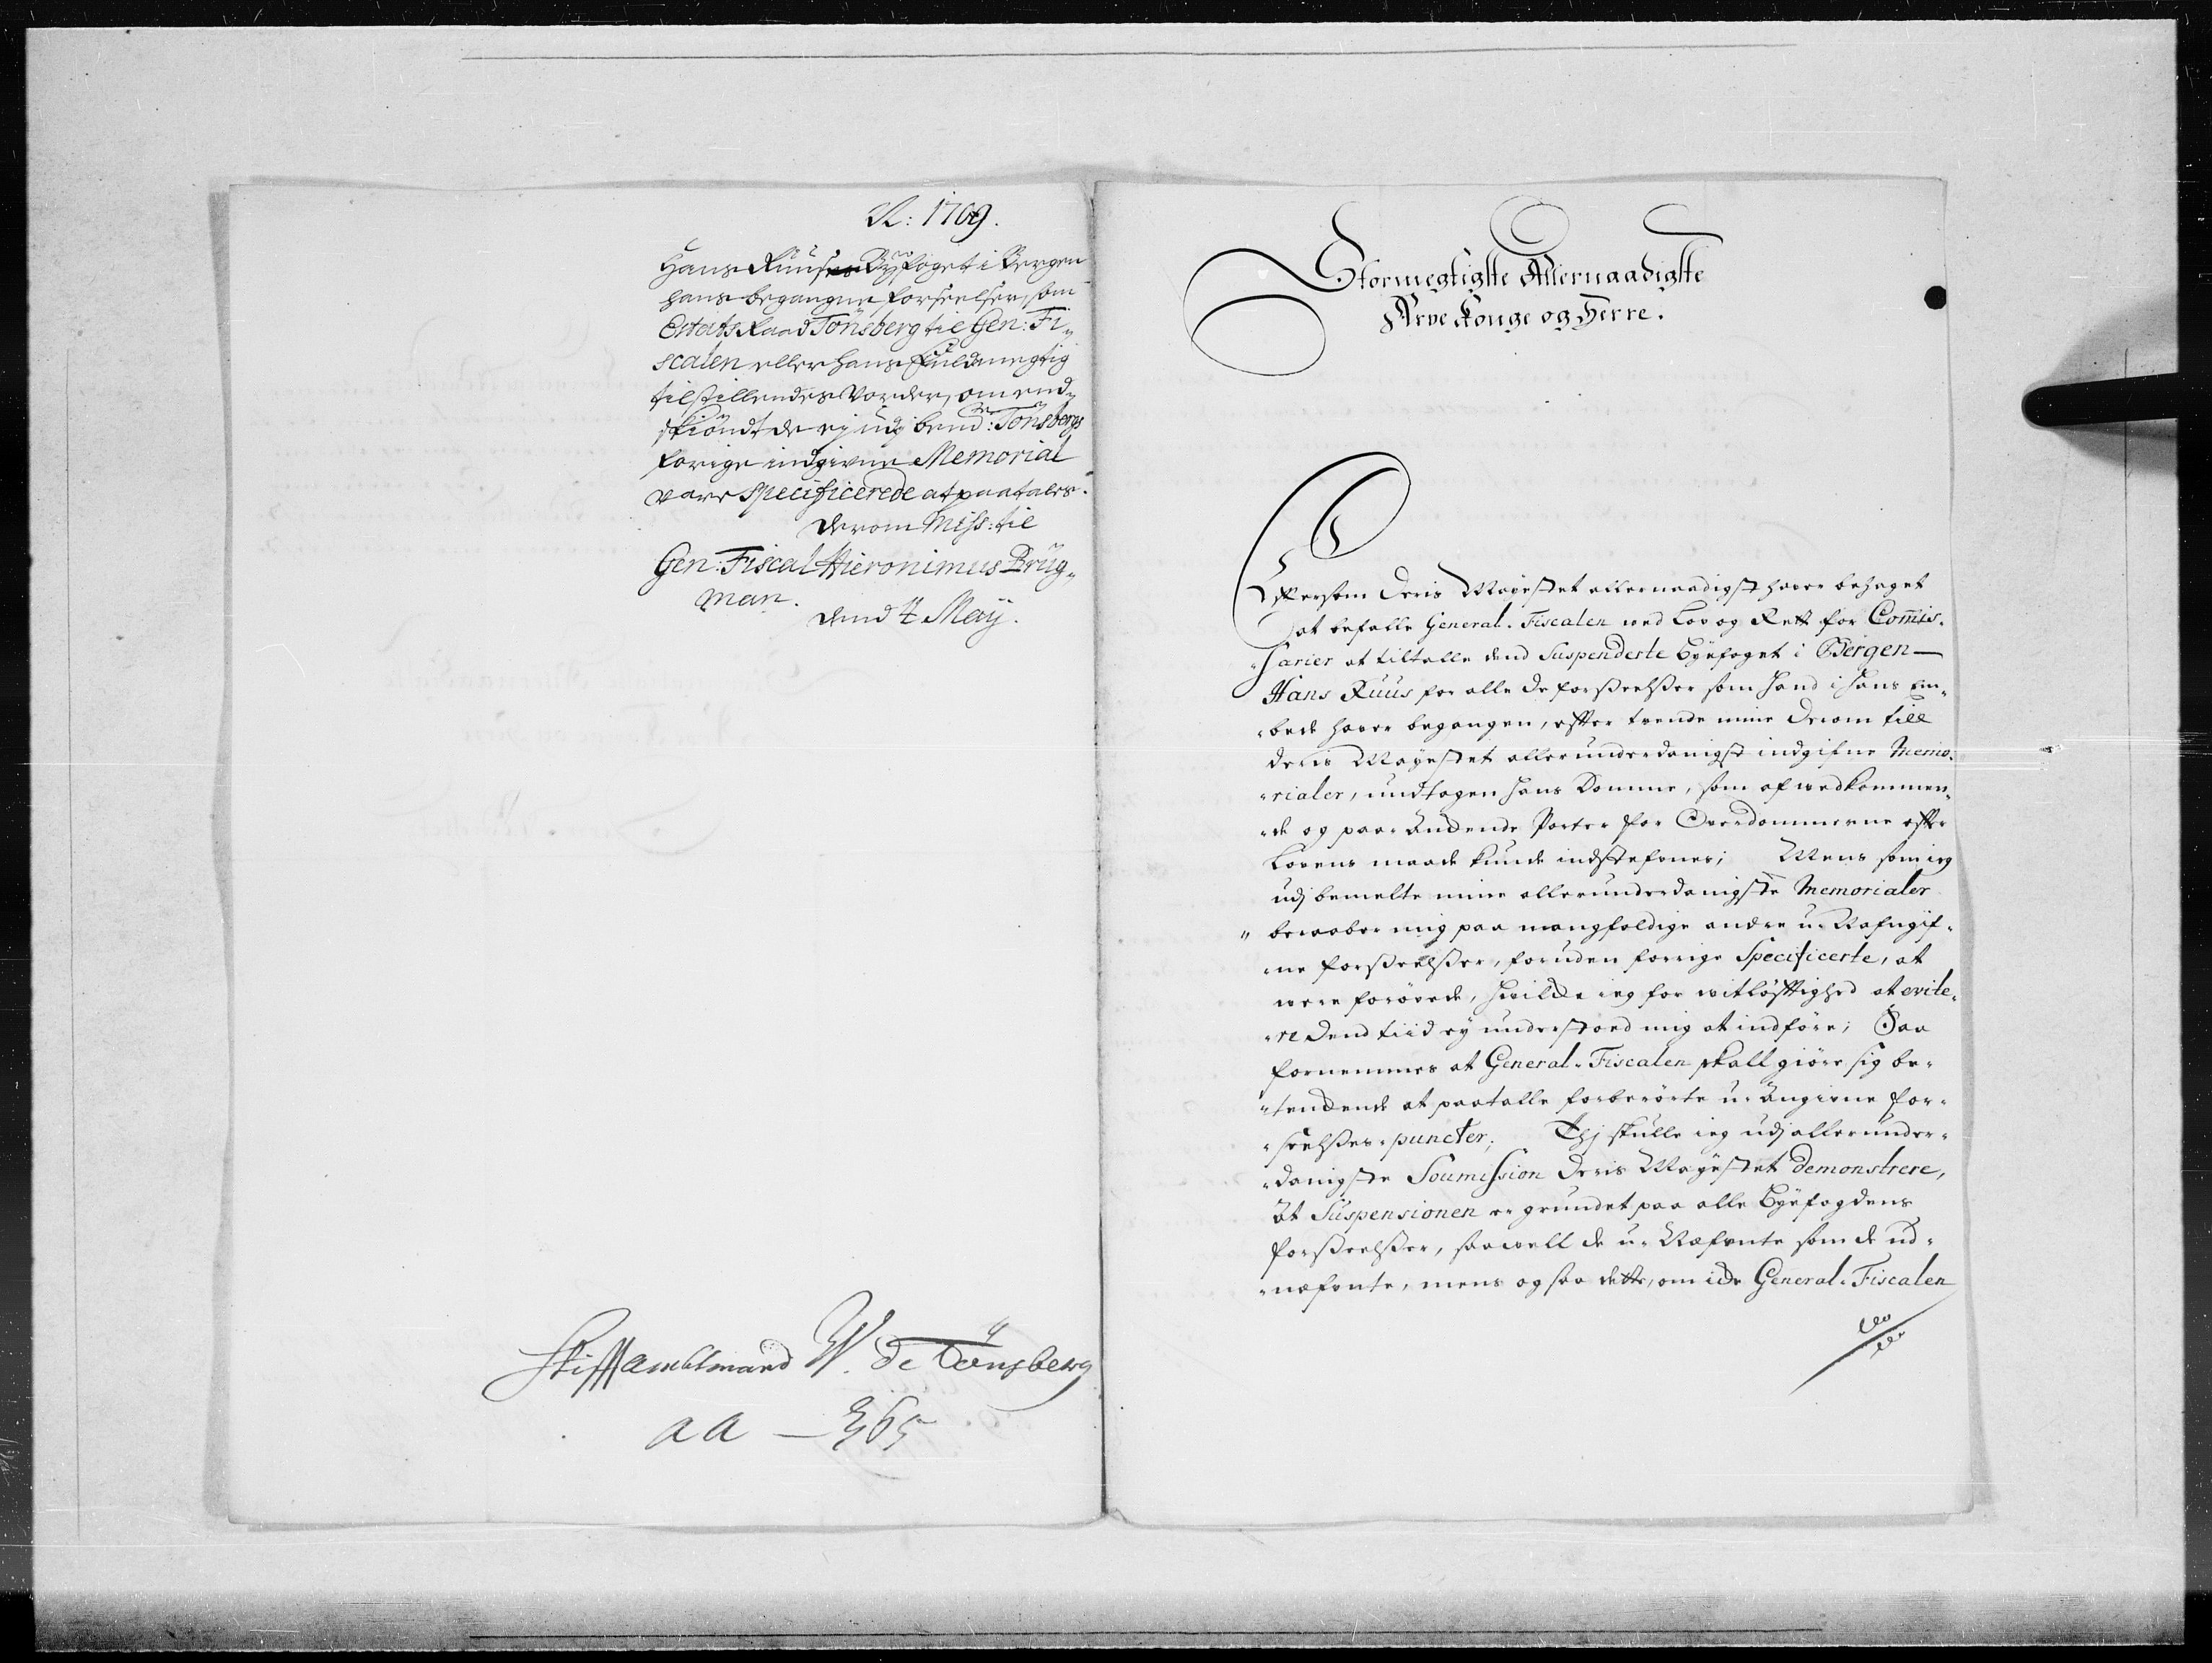 A: 1709.
Hans Ruus Byfoget i Bergen
hans begangne forseelser, som
Estats Raad Tönsberg til Gen: Fi-
scalen eller hans Fuldmegtig
tilstillendes vorder, omend-
skiöndt de ej udj bemd: Tönsbergs
forige indgivne Memorial
vare specificerede at paatales.
derom Miss: til
Gen: Fiscal Hieronimus Brüg-
man.
dend 4 Maij.
Stifftambtmand W. de Tönsberg
aa — 365
Stormegtigste Allernaadigste
Arve Konge og Herre.
Eftersom Deris Mayestet allernaadigst haver behaget
at befalle General-Fiscalen ved Lov og Rett for Commis-
sarier at tiltalle dend Suspenderte Byefoget i Bergen
Hans Ruus for alle de forseelsser som hand i hans Em-
bede haver begangen, effter trende mine derom till
deris Mayestet allerunderdanigst indgifne Memo-
rialer, undtagen hans Domme, som af vedkommen-
de og paaankende Parter for Overdommerne effter
Lovens maade kunde indstefnes; Mens som ieg
udj bemelte mine allerunderdanigste Memorialer
beraaber mig paa mangfoldige andre u-Nafngif-
ne forseelsser, foruden forrige Specificerte, at
were forövede, hvilke ieg for vitlöfftighed at evite-
re dend tiid ey understoed mig at indföre; Saa
fornemmes at General-Fiscalen skall giöre sig be-
tenckende at paatalle forberörte u-angivne for-
seelsses-puncter; Thj skulle ieg udj allerunder-
danigste Soumission Deris Mayestet demonstrere,
At Suspensionen er grundet paa alle Byefogdens
forseelsser, saavell de u-Nefnte som de ud-
nefnte, mens ogsaa dette, om icke General-Fiscalen